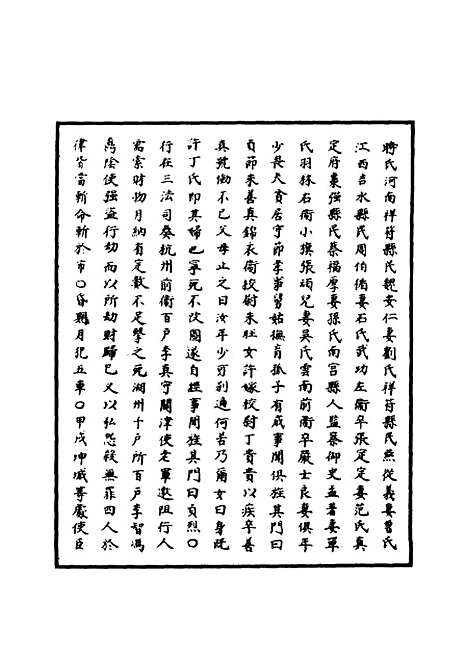 時氏河南祥符縣民魏安仁妻劉氏祥符縣民熊從義妻曹氏
江西吉水縣民周伯循妻石氏武功左衞卒張定定妻范氏真
定府棗強縣民蔡福厚妻孫氏南宮縣人監㬥仰史孟著妻單
氏羽林右衞小旗張頑兒妻吴氏雲南前衞卒嚴士良妻俱年
少喪夫貧居守節孝事舅姑撫育孤子有成事聞俱旌其門曰
貞節朱善真錦衣衞校尉朱旺女許嫁校尉丁貴貴以疾卒善
真號慟不已父母止之曰汝年少別適何若乃爾女曰身旣
許丁氏即其婦也寧死不改圖遂自經事聞旌其門曰貞烈〇
行在三法司奏杭州前衞百戶李真守關津使老軍邀阻行人
需索財物月納有定數不足擊之死湖州千戶所百戶李智馮
髙陰使強盗行劫而以所劫財歸已又以私忿殺無罪四人於
律皆當斬命斬於市〇昏刻月犯五車〇甲戌坤城等處使臣